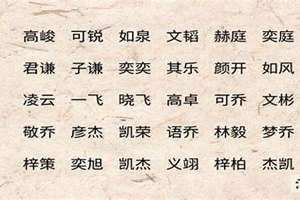 高峻 可锐 如泉 文韬 赫庭 奕庭
君谦 子谦 奕奕 其乐 颜开 如风
凌云 一飞 晓飞 高卓 可乔 文彬
敬乔 彦杰 凯荣 语乔 林毅 梦乔
梓策 奕旭 凯杰 义翊 梓柏 杰凯